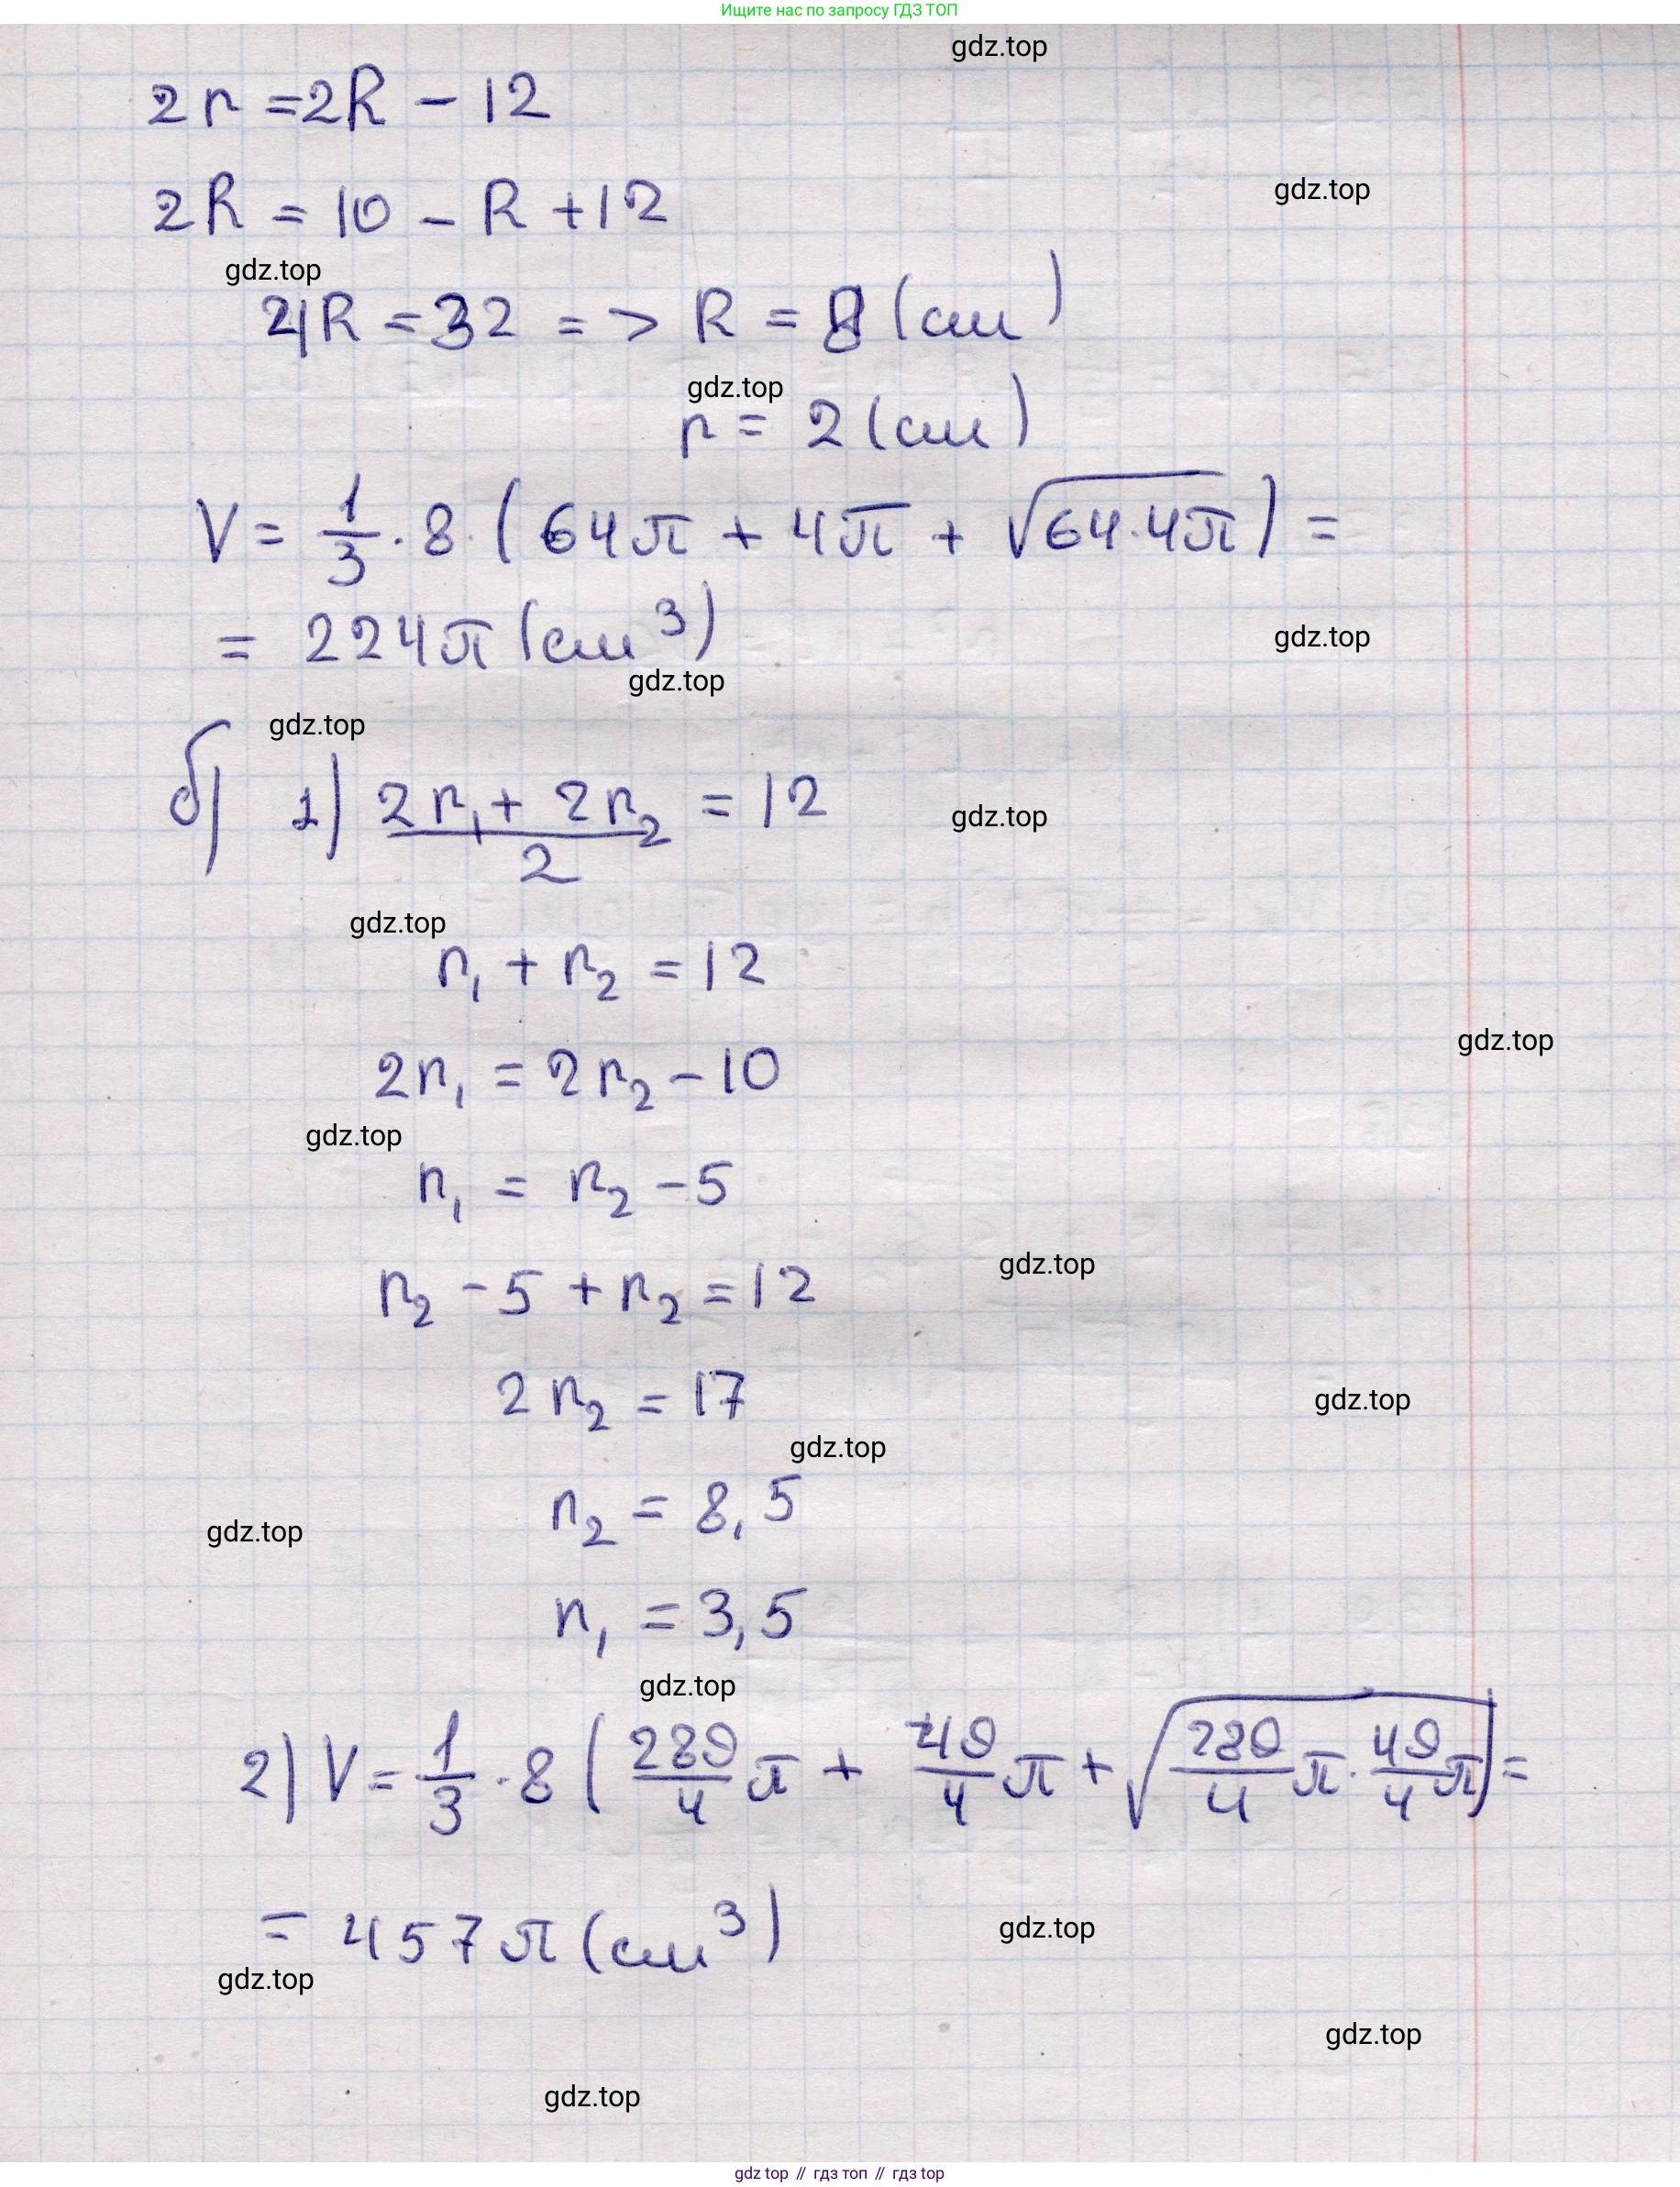 Ищите нас по запросу ГДЗ ТОП
gdz.top
2r = 2R - 12
gdz.top
2R = 10 - R + 12
gdz.top
4R = 32 => R = 8 (см)
gdz.top
r = 2 (см)
V = 1/3 · 8 · (64π + 4π + √(64·4π)) =
= 224π (см³)
gdz.top
gdz.top
gdz.top
б) 1) (2r₁ + 2r₂)/2 = 12
gdz.top
gdz.top
r₁ + r₂ = 12
gdz.top
2r₁ = 2r₂ - 10
gdz.top
r₁ = r₂ - 5
gdz.top
r₂ - 5 + r₂ = 12
2r₂ = 17
gdz.top
gdz.top
r₂ = 8,5
gdz.top
r₁ = 3,5
gdz.top
2) V = 1/3 · 8 (289/4 π + 49/4 π + √(289/4 π · 49/4 π)) =
= 457π (см³)
gdz.top
gdz.top
gdz.top
gdz.top
gdz top // гдз топ // gdz top